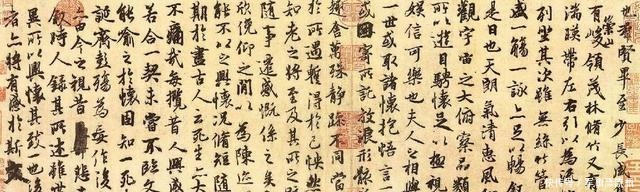 也羣賢畢至少長
崇山
有峻領茂林脩竹又
湍暎帶左右引以為
列坐其次雖無絲竹
盛一觴一詠亦足以暢
是日也天朗氣清惠風
觀宇宙之大俯察品類
所以遊目騁懷足以極視
娛信可樂也夫人之相與
一世或取諸懷抱悟言一
或因寄所託放浪形骸
趣舍萬殊靜躁不同當
於所遇蹔得於己怏然
知老之將至及其所之
隨事遷感慨係之矣
俛仰之閒以為陳迹
能不以之興懷況脩短隨
期於盡古人云死生亦大
不痛哉每攬昔人興感
若合一契未嘗不臨文
能喻之於懷固知一死
誕齊彭殤為妄作後
亦由今之視昔悲夫
敘時人錄其所述雖世
異所以興懷其致一也
者亦將有感於斯